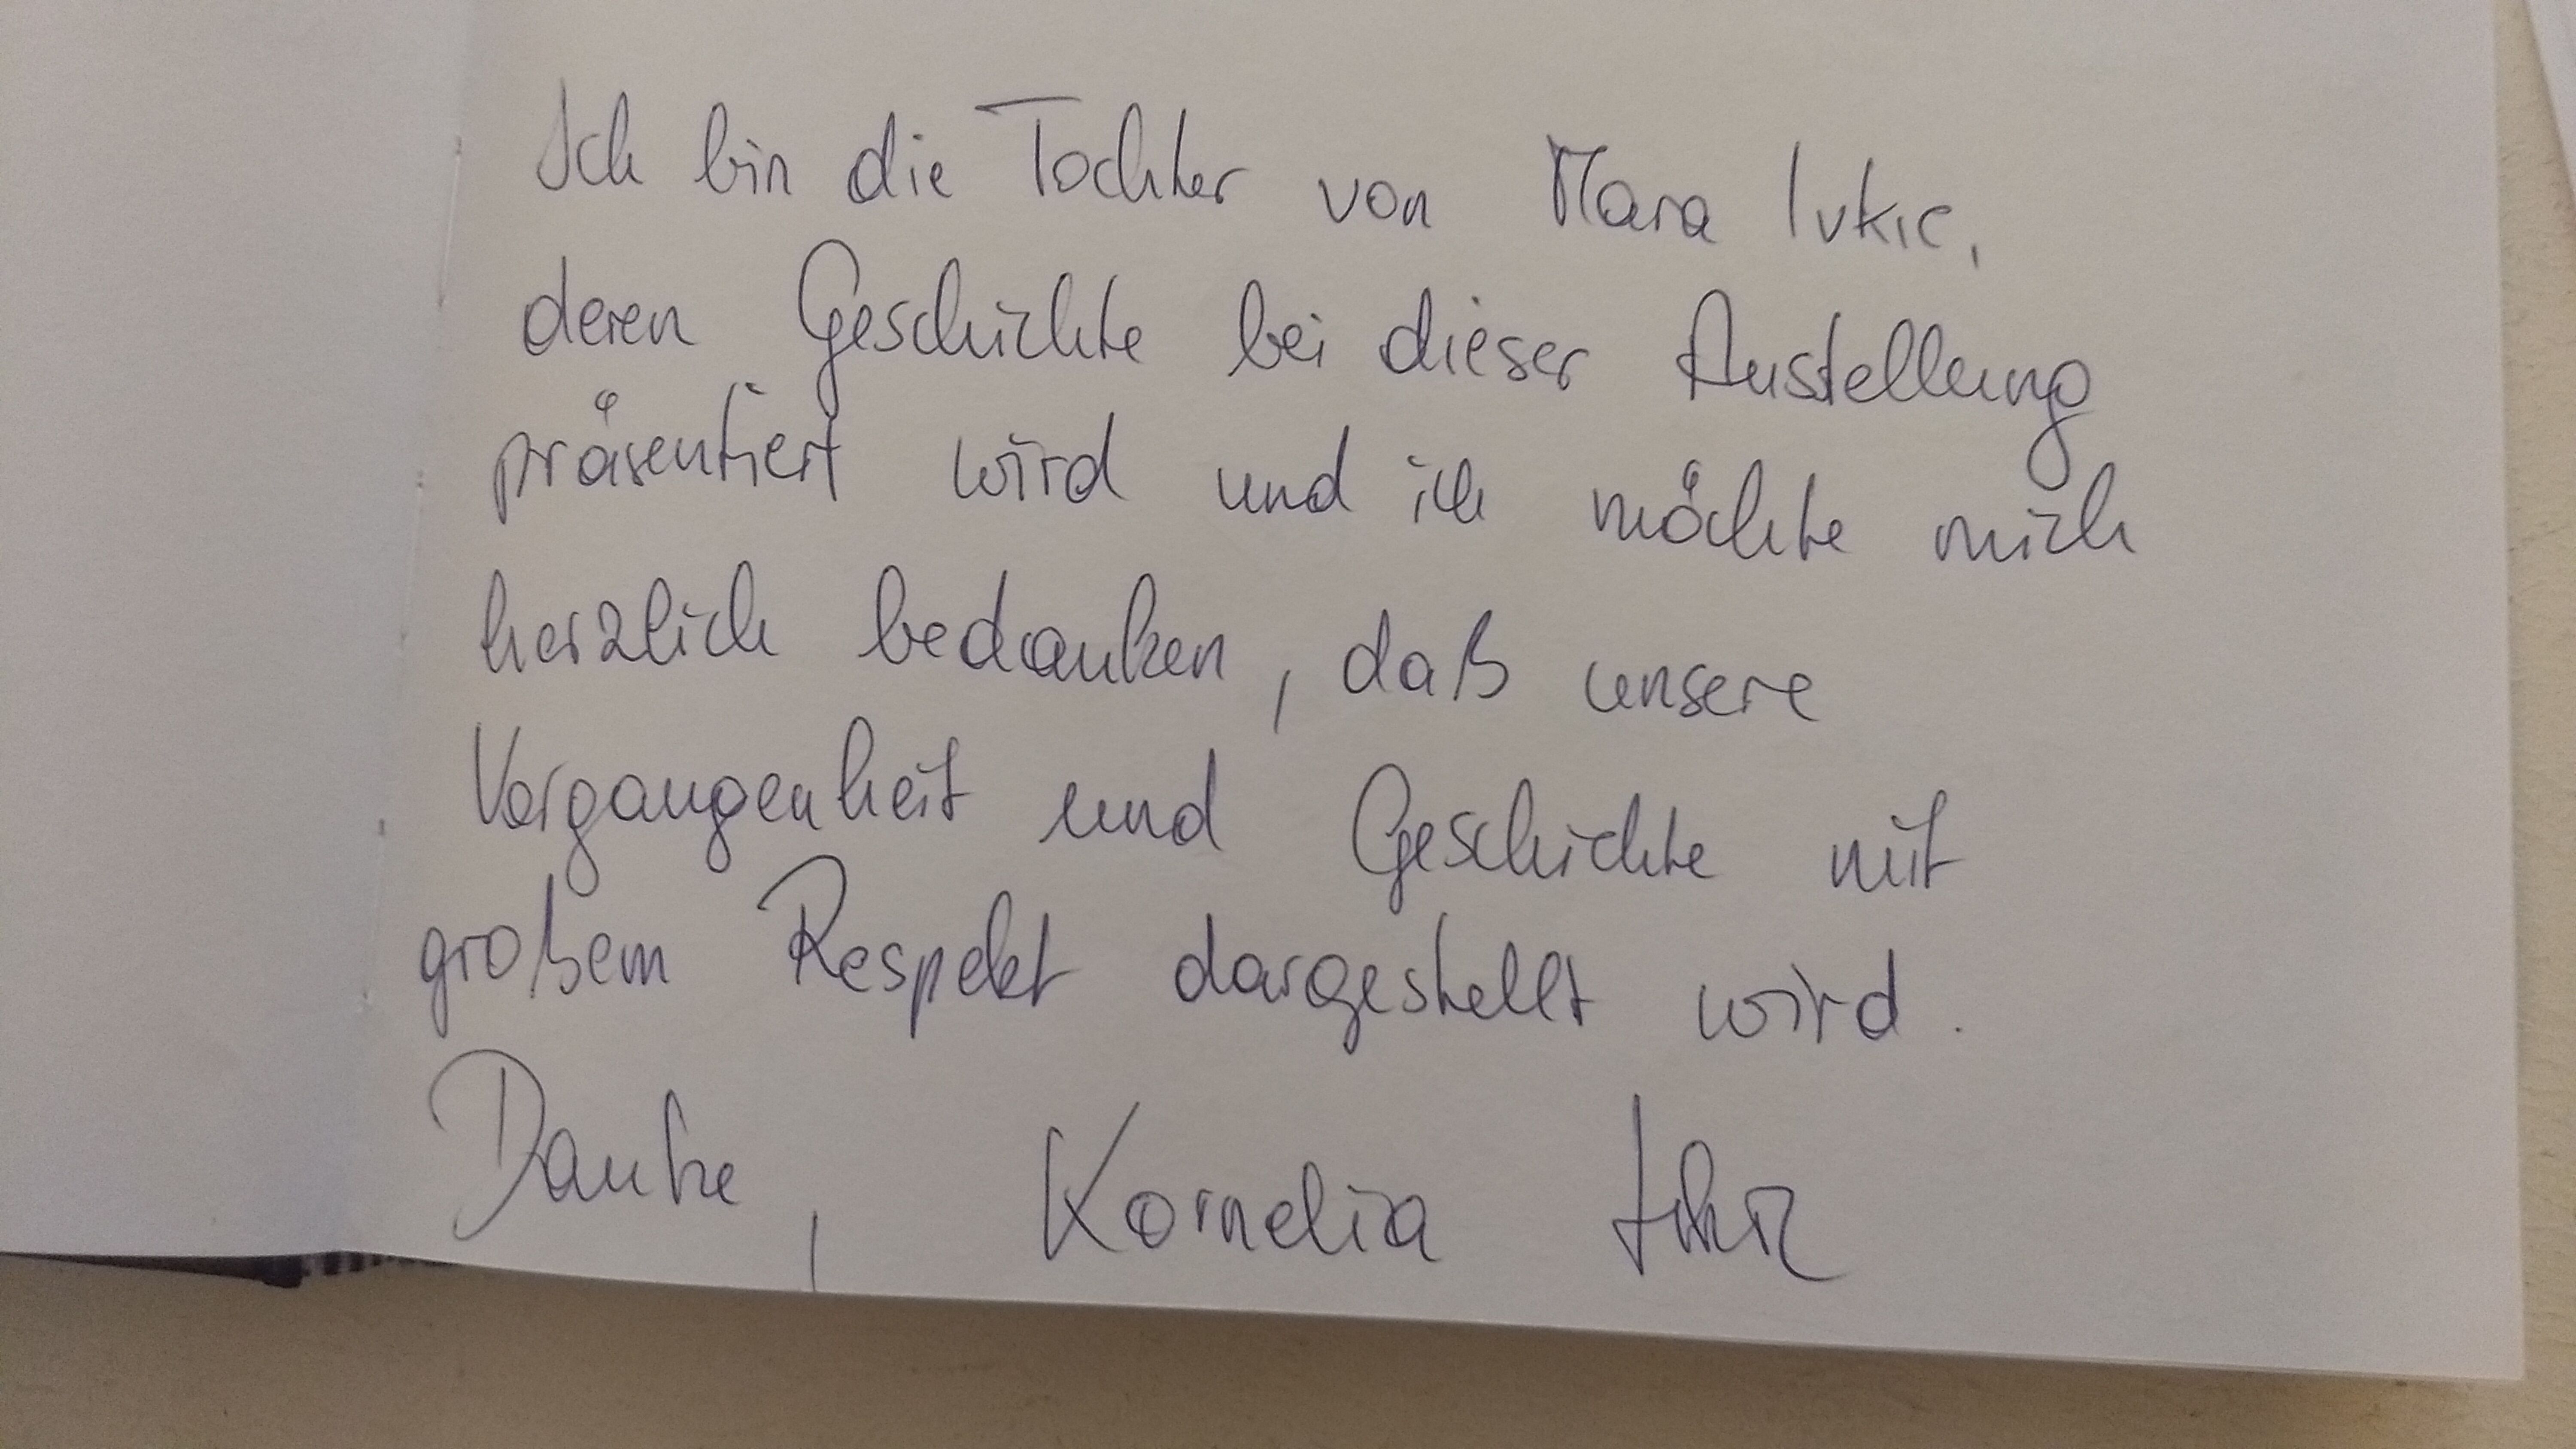 Ich bin die Tochter von Mara Ivkic,
deren Geschichte bei dieser Austellung
präsentiert wird und ich möchte mich
herzlich bedanken, daß unsere
Vergangenheit und Geschichte mit
großem Respekt dargestellt wird.
Danke, Kornelia